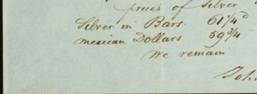 prices of Silver
Silver in Bars. 61¼d
mexican Dollars 59¾
We remain
John